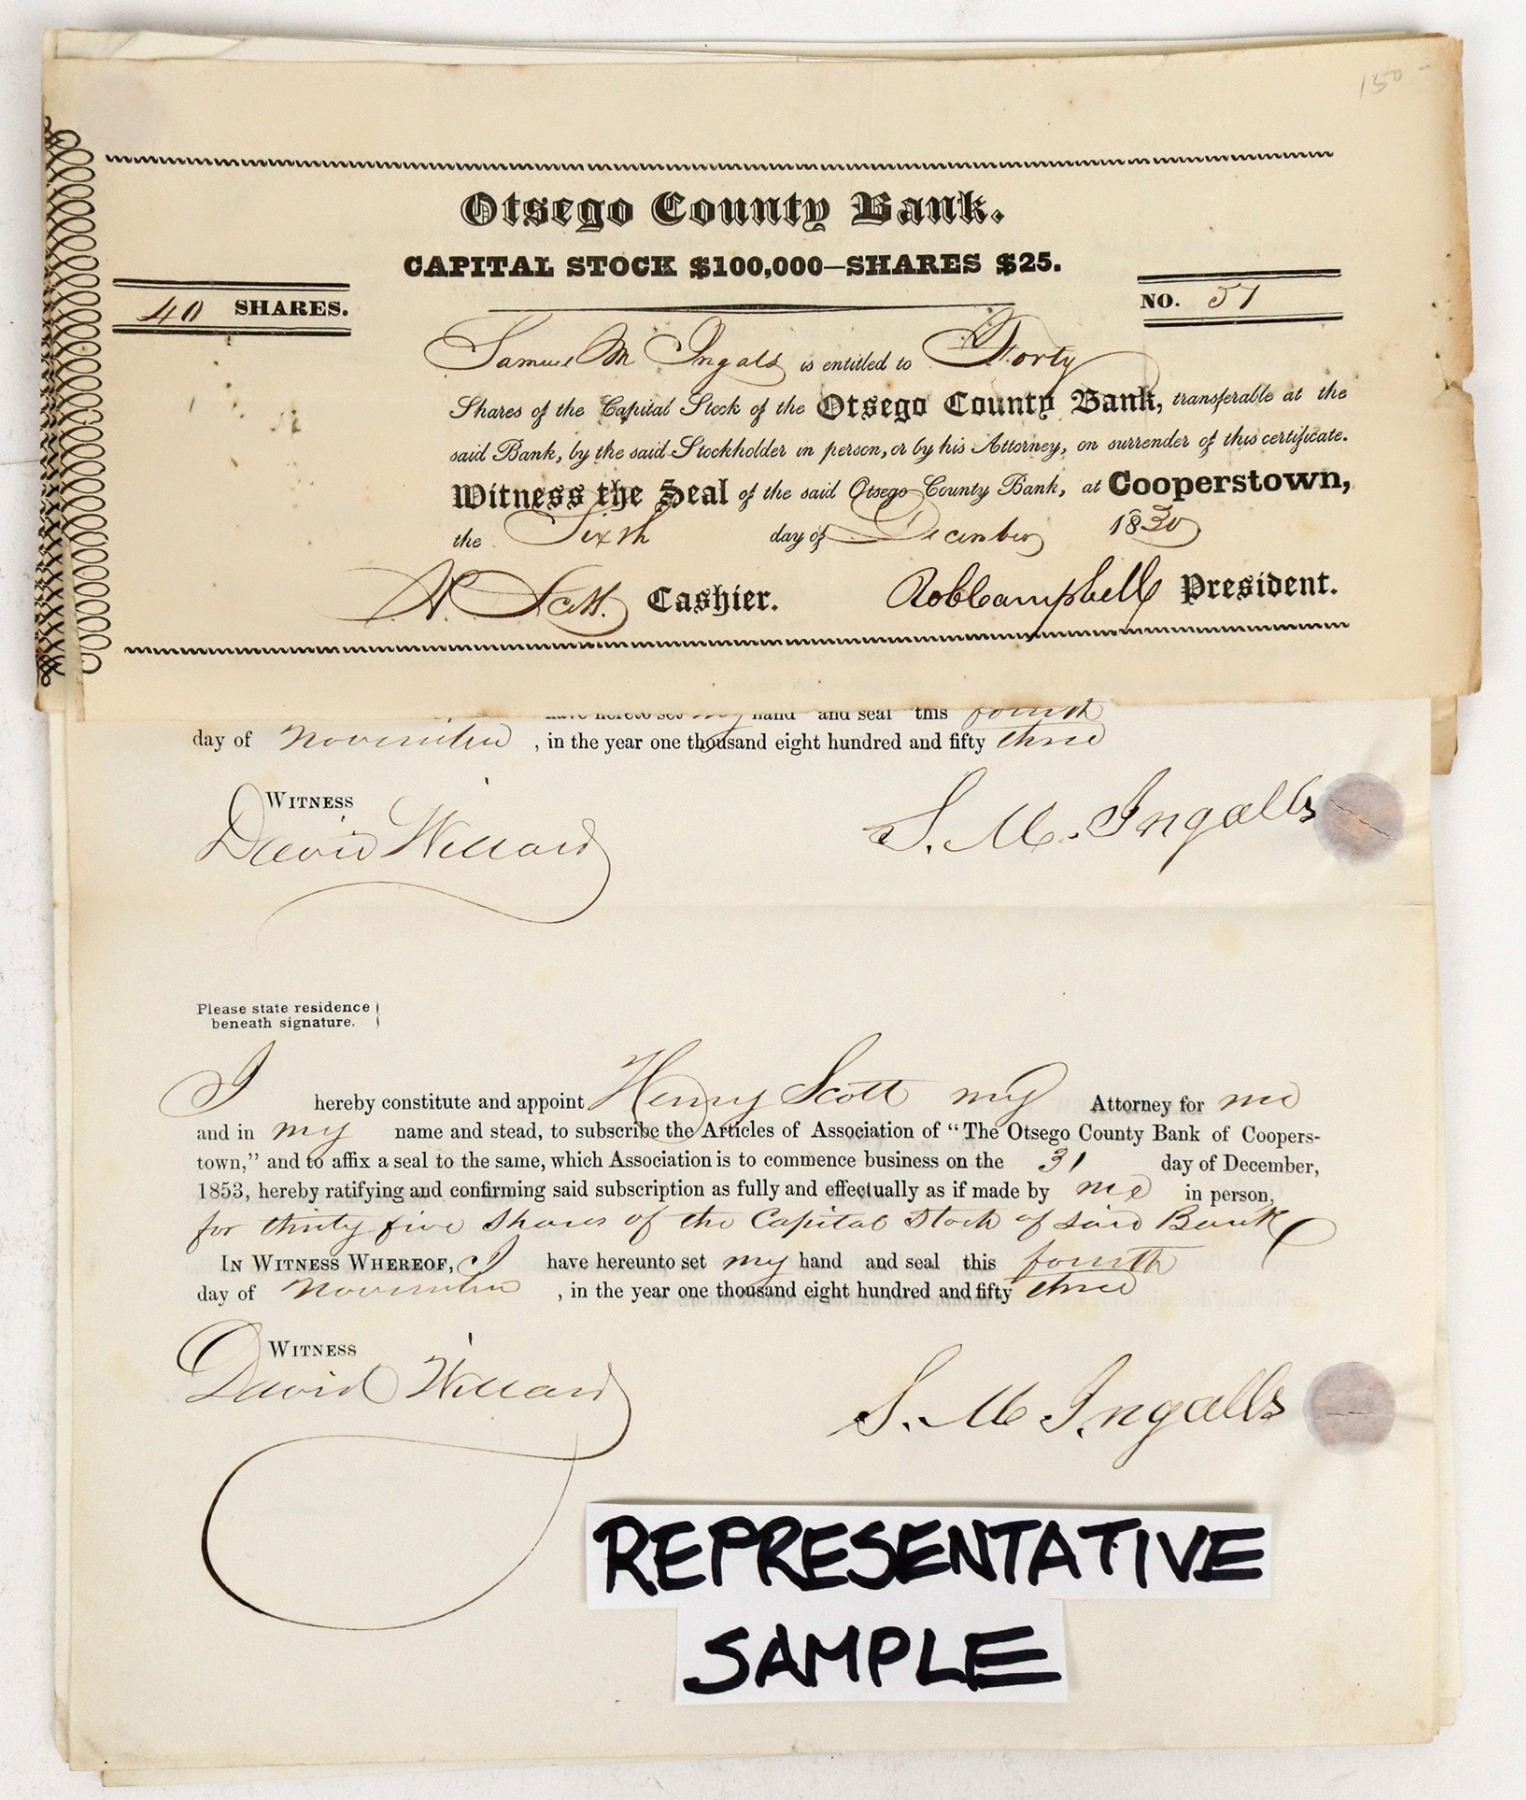 150 -
Otsego County Bank.
CAPITAL STOCK $100,000—SHARES $25.
40 SHARES.
NO. 51
Samuel M Ingals is entitled to Forty
Shares of the Capital Stock of the Otsego County Bank, transferable at the
said Bank, by the said Stockholder in person, or by his Attorney, on surrender of this certificate.
Witness the Seal of the said Otsego County Bank, at Cooperstown,
the Sixth day of December 1830
H. Scott. Cashier. RobCampbell President.
have hereto set my hand and seal this fourth
day of November , in the year one thousand eight hundred and fifty three
WITNESS
David Willard S. M. Ingalls
Please state residence
beneath signature.
I hereby constitute and appoint Henry Scott my Attorney for me
and in my name and stead, to subscribe the Articles of Association of "The Otsego County Bank of Coopers-
town," and to affix a seal to the same, which Association is to commence business on the 31 day of December,
1853, hereby ratifying and confirming said subscription as fully and effectually as if made by me in person,
for thirty five Shares of the Capital Stock of said Bank
IN WITNESS WHEREOF, I have hereunto set my hand and seal this fourth
day of November , in the year one thousand eight hundred and fifty three
WITNESS
David Willard S. M Ingalls
REPRESENTATIVE
SAMPLE